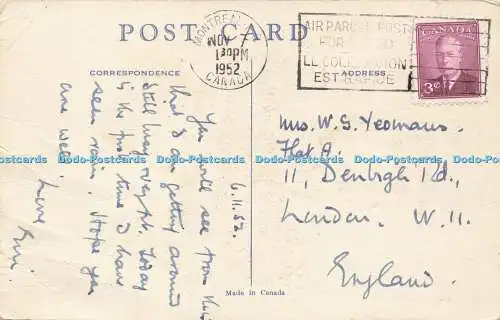 POST CARD
MONTREAL
NOV
1 30 PM
1952
CANADA
AIR PARCEL POST
FOR SPEED
LE COLIS AVION
EST RAPIDE
CANADA
3¢
CORRESPONDENCE
ADDRESS
6.11.52.
You will see from this
that I am getting around
still very wet. Today
is the first time I have
seen rain. Hope you
are well.
Love
Mrs. W. S. Yeomans.
Flat A.
11, Denbigh Rd.,
London. W. 11.
England.
Made in Canada
Dodo-Postcards Dodo-Postcards Dodo-Postcards Dodo-Postcards Dodo-Postcards